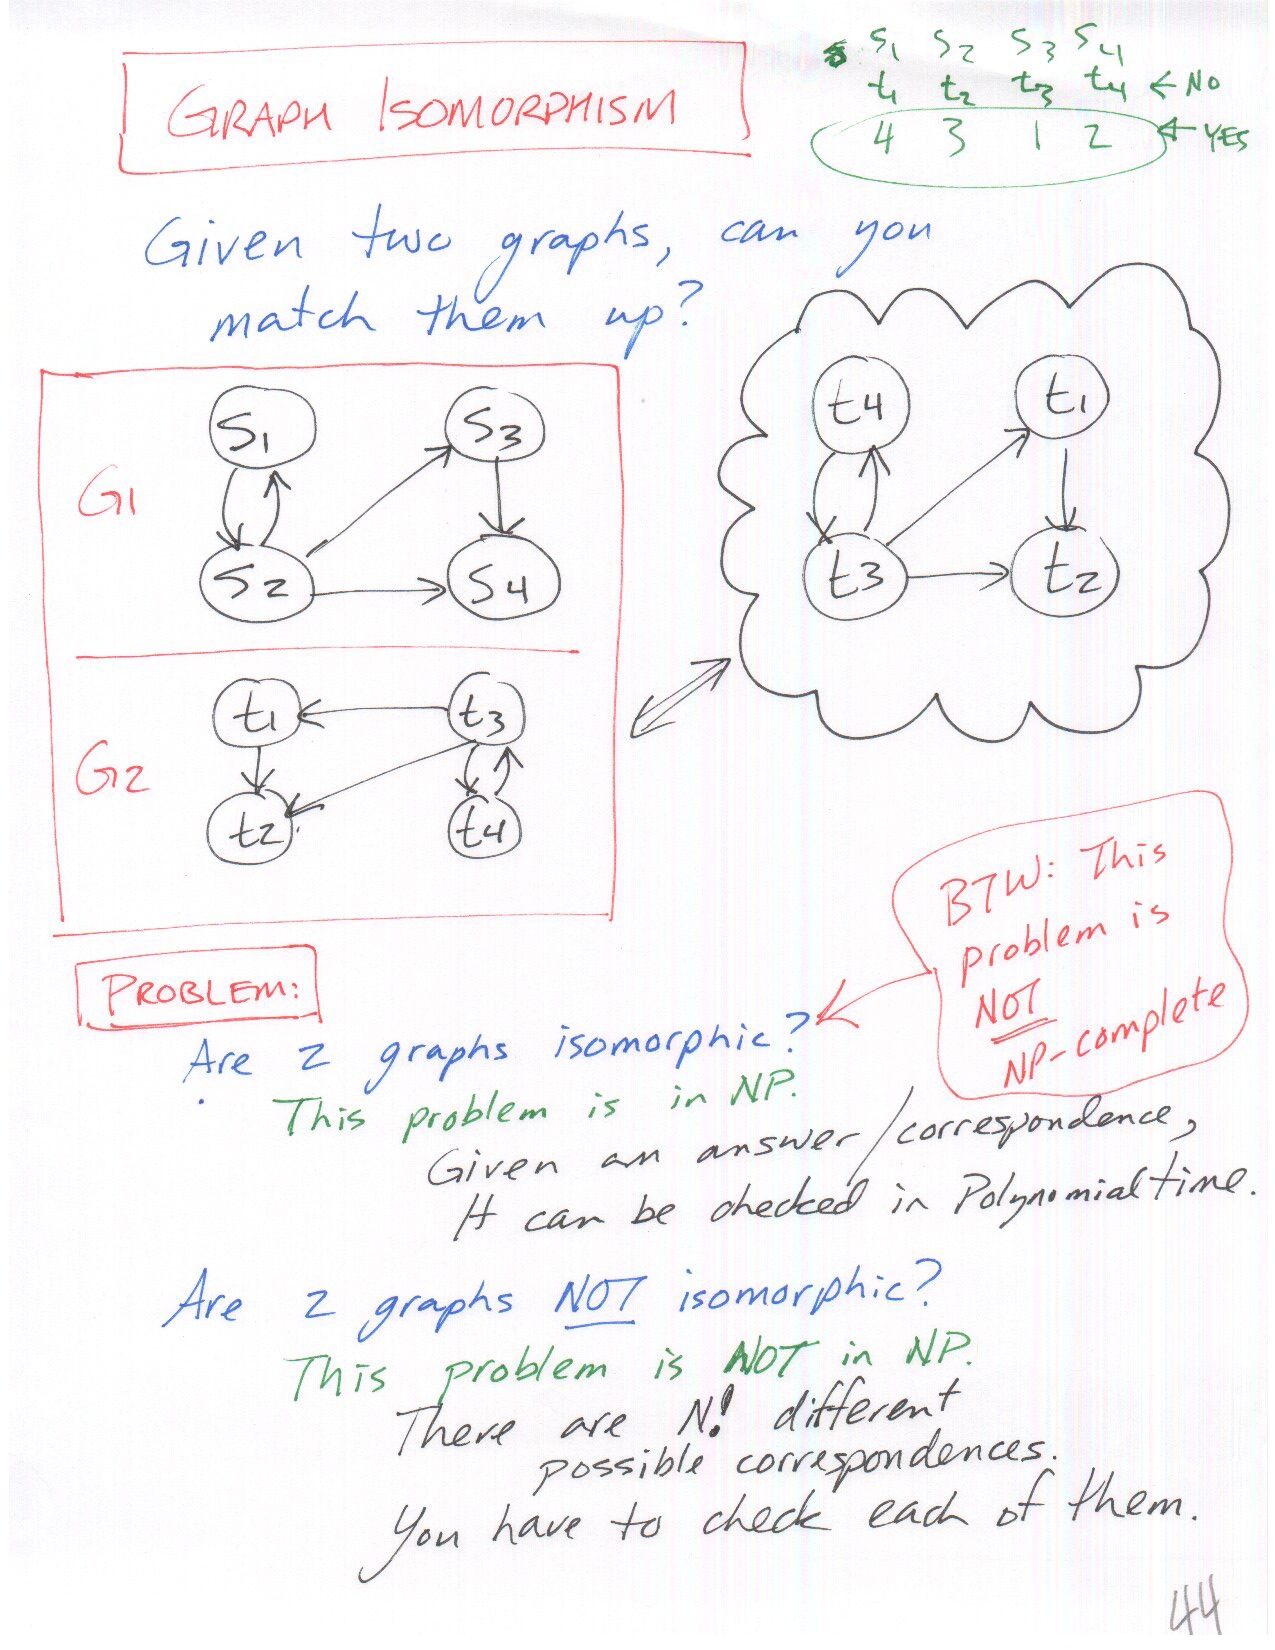 GRAPH ISOMORPHISM
S1 S2 S3 S4
t1 t2 t3 t4 ← NO
4 3 1 2 ← YES
Given two graphs, can you
match them up?
G1
S1 S3
S2 S4
G2
t1 t3
t2 t4
t4 t1
t3 t2
BTW: This
problem is
NOT
NP-complete
PROBLEM:
Are 2 graphs isomorphic?
This problem is in NP.
Given an answer/correspondence,
It can be checked in Polynomial time.
Are 2 graphs NOT isomorphic?
This problem is NOT in NP.
There are N! different
possible correspondences.
You have to check each of them.
44